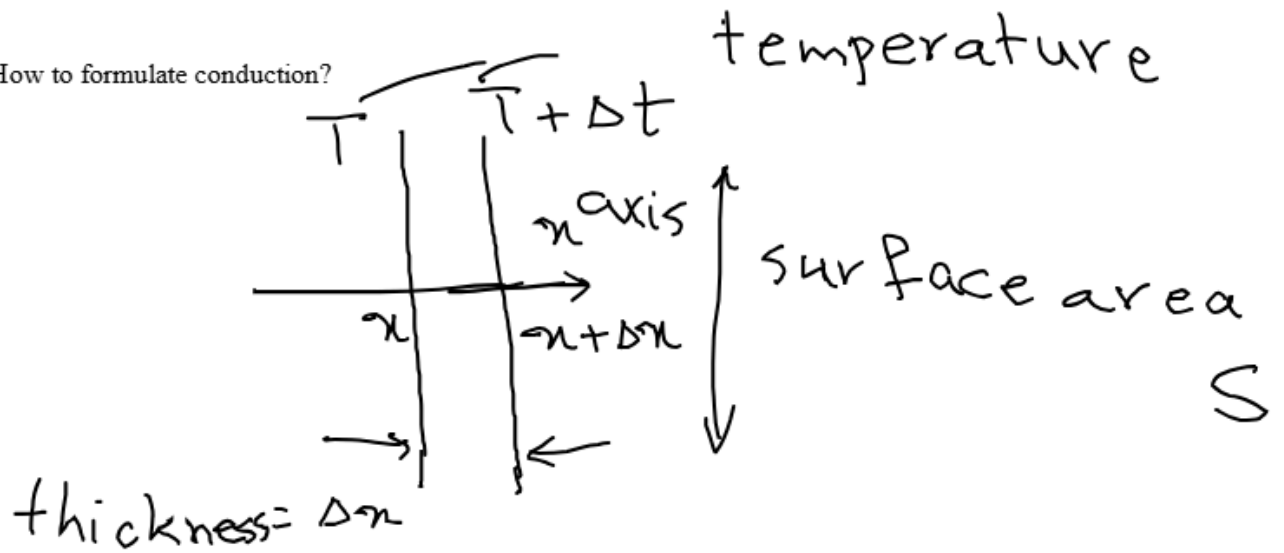 How to formulate conduction?
temperature
T
T + Δt
x axis
surface area
S
x
x + Δx
thickness = Δx